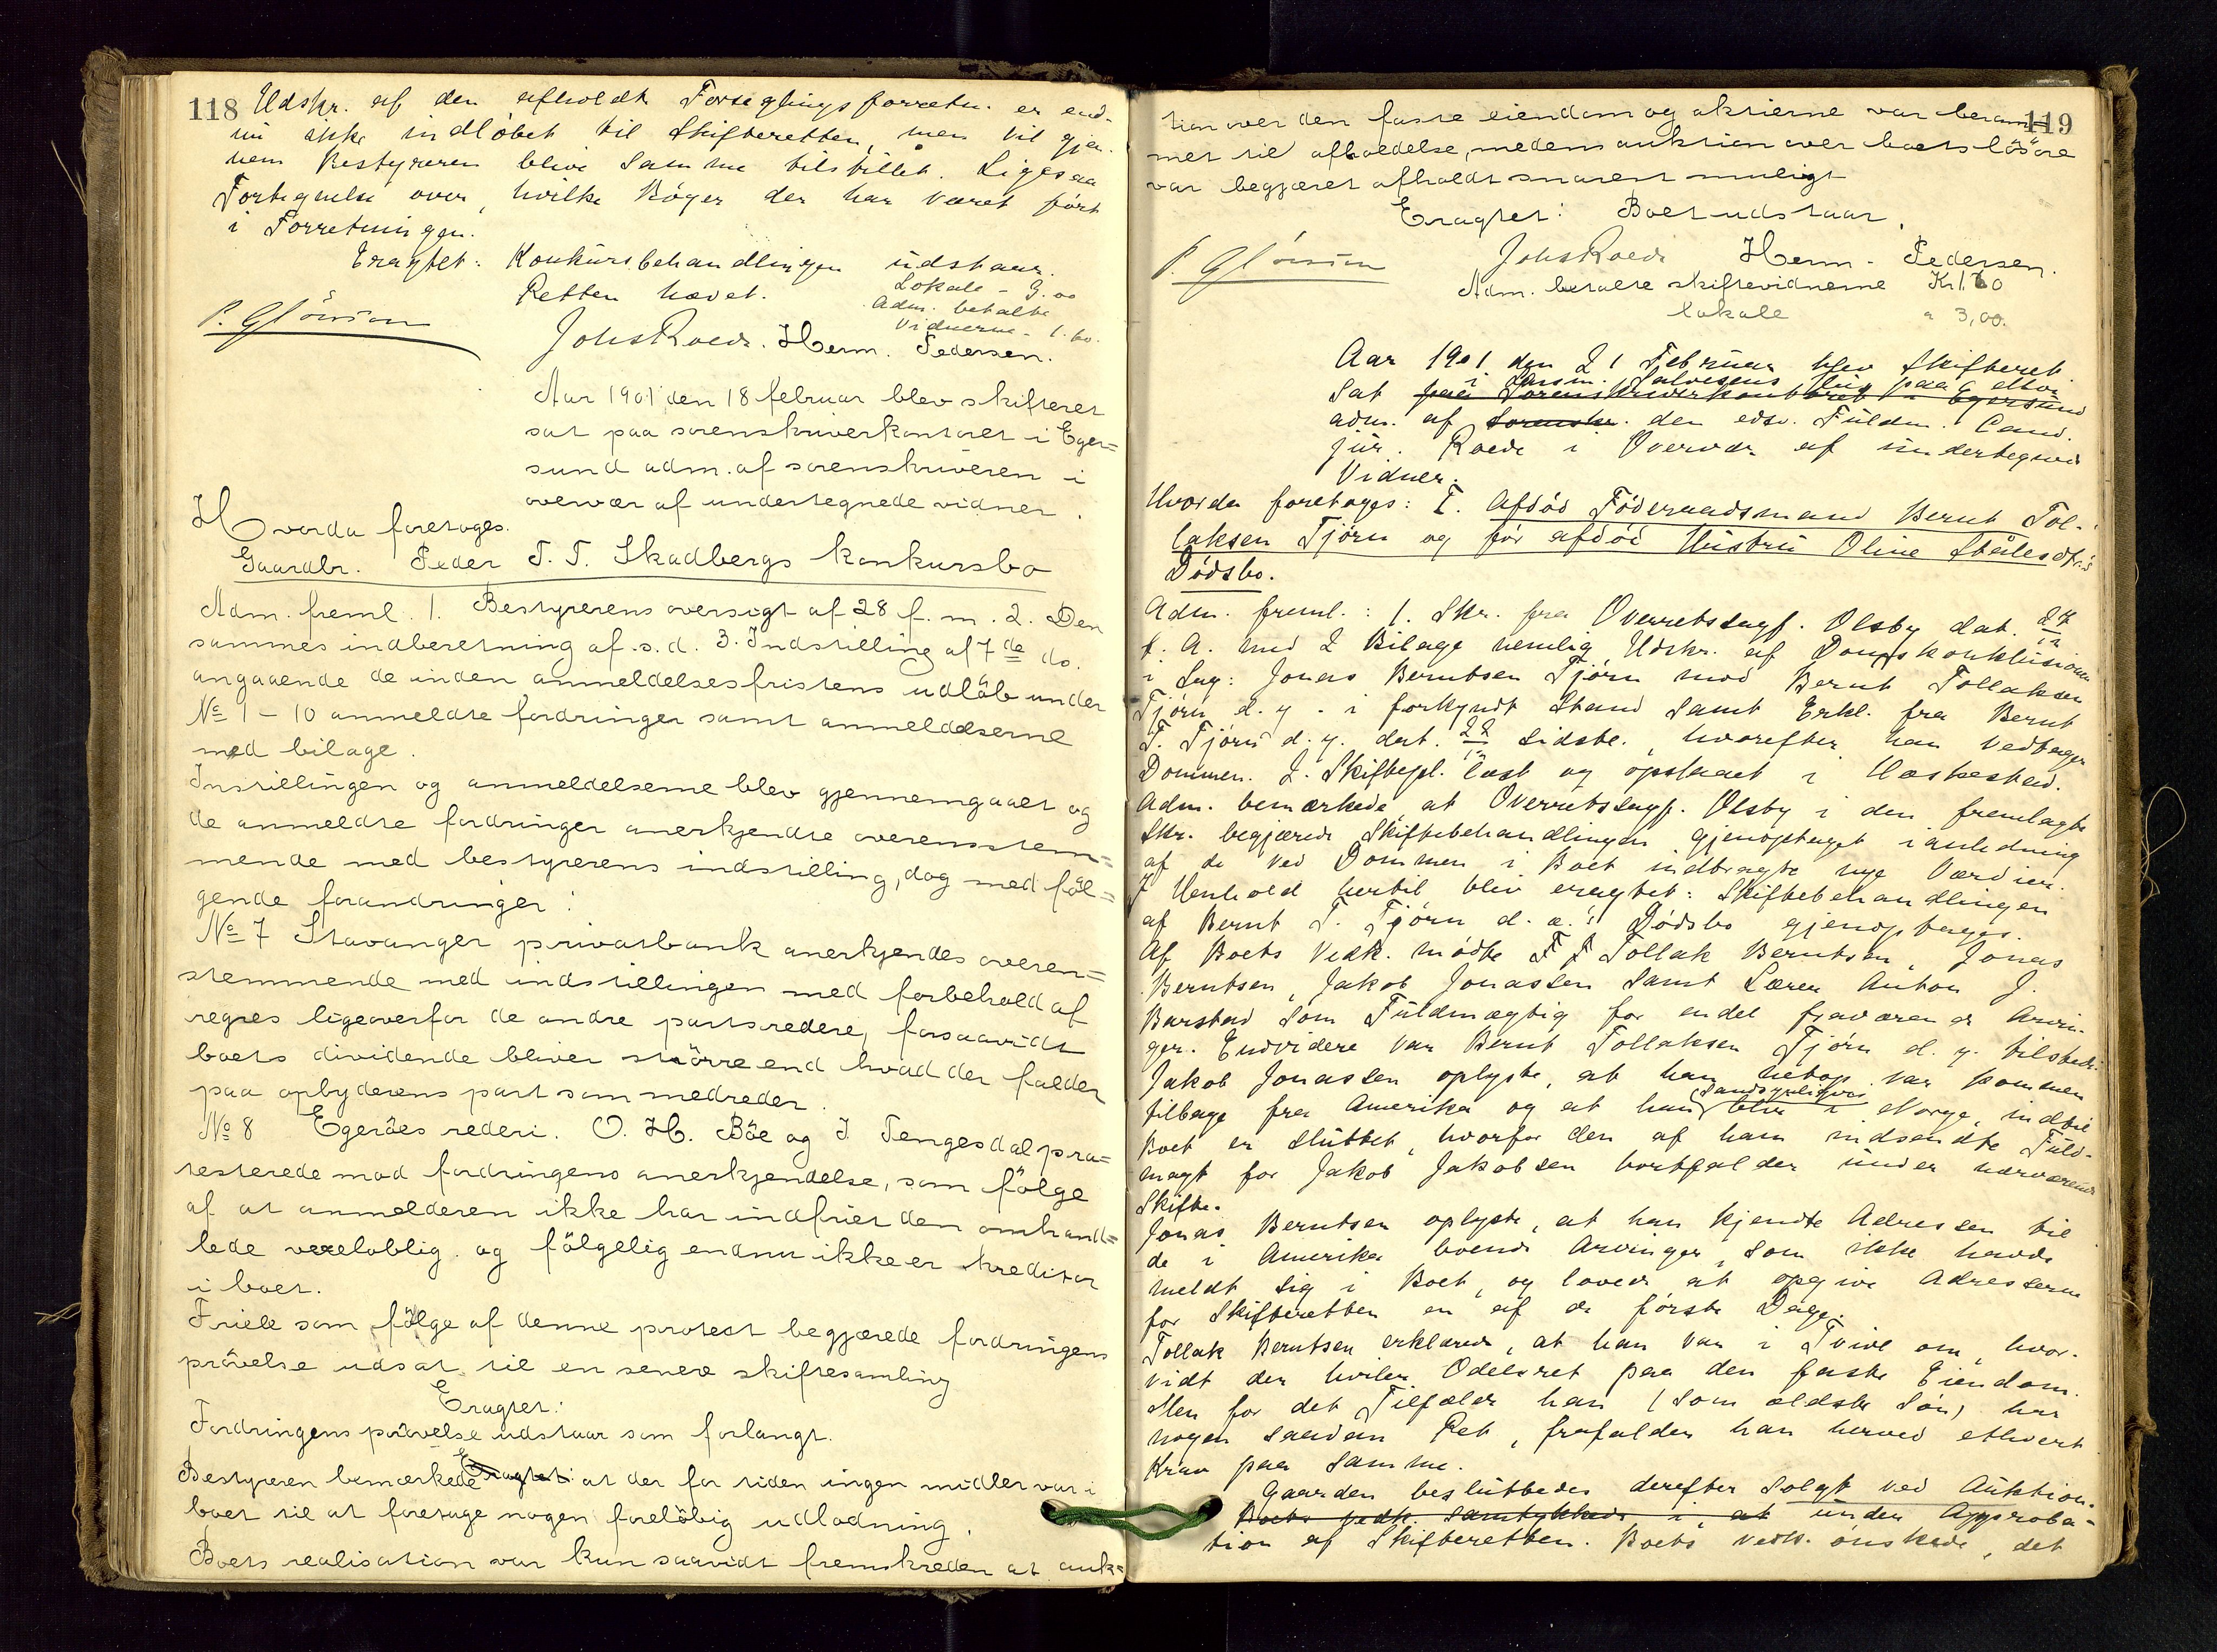 118 Udskr. af den afholdte Forseglingsforretn. er end-
nu ikke indløbet til Skifteretten, men vil gjen-
nem Bestyreren blive samme tilstillet. Ligesaa
Fortegnelse over, hvilke Bøger der har været ført
i Forretningen.
Eragtet: Konkursbehandlingen udstaar.
Retten hævet.
Lokale - 3.00
Adm. betalte
Vidnerne - 1.60.
P. Glörsson
Johs Roede. Herm. Pedersen.
Aar 1901 den 18 februar blev skifteret
sat paa sorenskriverkontoret i Eger=
sund adm. af sorenskriveren i
overvær af undertegnede vidner.
Hvorda foretoges.
Gaardbr. Peder T. T. Skadbergs konkursbo
Adm. freml. 1. Bestyrerens oversigt af 28 f. m. 2. Den
sammes indberetning af s. d. 3. Indstilling af 7de ds.
angaaende de inden anmeldelsesfristens udløb under
No 1 - 10 anmeldte fordringer samt anmeldelserne
med bilage.
Instillingen og anmeldelserne blev gjennemgaaet og
de anmeldte fordringer anerkjendte overensstem=
mende med bestyrerens indstilling, dog med föl=
gende forandringer:
No 7 Stavanger privatbank anerkjendes overen=
stemmende med indstillingen med forbehold af
regres ligeoverfor de andre partsredere, forsaavidt
boets dividende bliver större end hvad der falder
paa opbyderens part som medreder.
No 8 Egeröes rederi. O. H. Böe og J. Tengesdal pro=
testerede mod fordringens anerkjendelse, som fölge
af at anmelderen ikke har indfriet den omhand=
lede vexeloblig. og fölgelig endnu ikke er kreditor
i boet.
Friele som fölge af denne protest begjærede fordringens
prövelse udsat til en senere skiftesamling
Eragtet:
Fordringens prövelse udstaar som forlangt.
Bestyreren bemærkede Eragtet: at der for tiden ingen midler var i
boet til at foretage nogen foreløbig udlodning.
Boets realisation var kun saavidt fremskreden at auk=
119
tion over den faste eiendom og aktierne var beram=
met til afholdelse, medens auktion over boets lösöre
var begjæret afholdt snarest muligt
Eragtet: Boet udstaar.
P. Glörsson
Johs Roede Herm. Pedersen.
Adm. betalte skiftevidnerne Kr 1.60
lokale " 3,00.
Aar 1901 den 21 Februar blev Skifteret
sat paa Sorenskriverkontoret i Egersund
adm. af Sorenskr. den edsv. Fuldm. Cand.
jur. Roede i Overvær af undertegnede
Vidner.
Hvorda foretoges: I. Afdød Føderaadsmand Bernt Tol-
laksen Tjörn og før afdöd Hustru Oline Ståles dtr.s
Dødsbo.
Adm. freml.: 1. Skr. fra Overretssagf. Olsby dat. 27
f. A. med 2 Bilage nemlig Udskr. af Domskonklusionen
i Sag: Jonas Berntsen Tjörn mod Bernt Tollaksen
Tjörn d. y. i forkyndt Stand samt Erkl. fra Bernt
T. Tjörn d. y. dat. 22 sidste, hvorefter han vedtager
Dommen. 2. Skiftepl. læst og opslaaet i Heskestad.
Adm. bemærkede, at Overretssagf. Olsby i den fremlagte
Skr. begjærede Skiftebehandlingen gjenoptaget i anledning
af de ved Dommen i Boet indbragte nye Værdier.
I Henhold hertil blev eragtet: Skiftebehandlingen
af Bernt T. Tjörn d. æ.s Dødsbo gjenoptages.
Af Boets Vedk. mødte Tollak Berntsen, Jonas
Berntsen, Jakob Jonassen samt Lærer Anton J.
Barstad som Fuldmægtig for endel fraværende Arvin-
ger. Endvidere var Bernt Tollaksen Tjörn d. y. tilstede.
Jakob Jonassen oplyste, at han netop var kommen
tilbage fra Amerika og at han (sandsynligvis) blir i Norge, indtil
Boet er sluttet, hvorfor den af ham indsendte Fuld-
magt for Jakob Jakobsen bortfalder under nærværende
Skifte.
Jonas Berntsen oplyste, at han kjendte Adressen til
de i Amerika boende Arvinger, som ikke havde
meldt sig i Boet, og lovede at opgive Adresserne
for Skifteretten en af de første Dage.
Tollak Berntsen erklærede, at han var i Tvivl om, hvor-
vidt der hviler Odelsret paa den faste Eiendom.
Men for det Tilfælde han (som ældste Søn) har
nogen saadan Ret, frafalder han herved ethvert
Krav paa samme.
Gaarden besluttedes derefter solgt ved Auktion.
Boets vedk. samtykkede i, at under Approba-
tion af Skifteretten. Boets vedk. ønskede, det